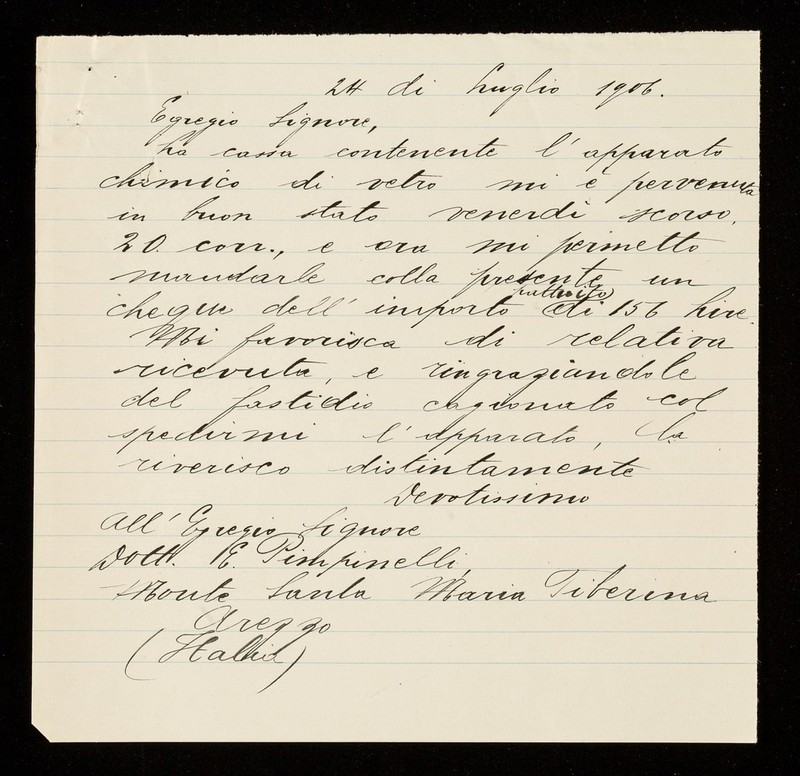 24 di Luglio 1906.
Egregio Signore,
La cassa contenente l'apparato
chimico di vetro mi è pervenuta
in buon stato venerdì scorso,
20 corr., e ora mi permetto
mandarle colla presente un
pattuito
cheque dell'importo di 156 Lire.
Mi favorisca di relativa
ricevuta, e ringraziandole
del fastidio cagionato col
spedirmi l'apparato, la
riverisco distintamente
Devotissimo
All' Egregio Signore
Dott. E. Pimpinelli,
Monte Santa Maria Tiberina
Arezzo
(Italia)